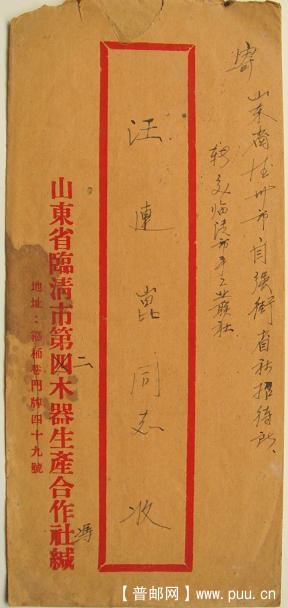 寄 山东省德州市自强街省社招待所、
转交临清市手工業社
汪連崑同志 收
山東省臨清市第四木器生產合作社緘
二
馮
地址：箍桶巷門牌四十九號
【普邮网】www.puu.cn